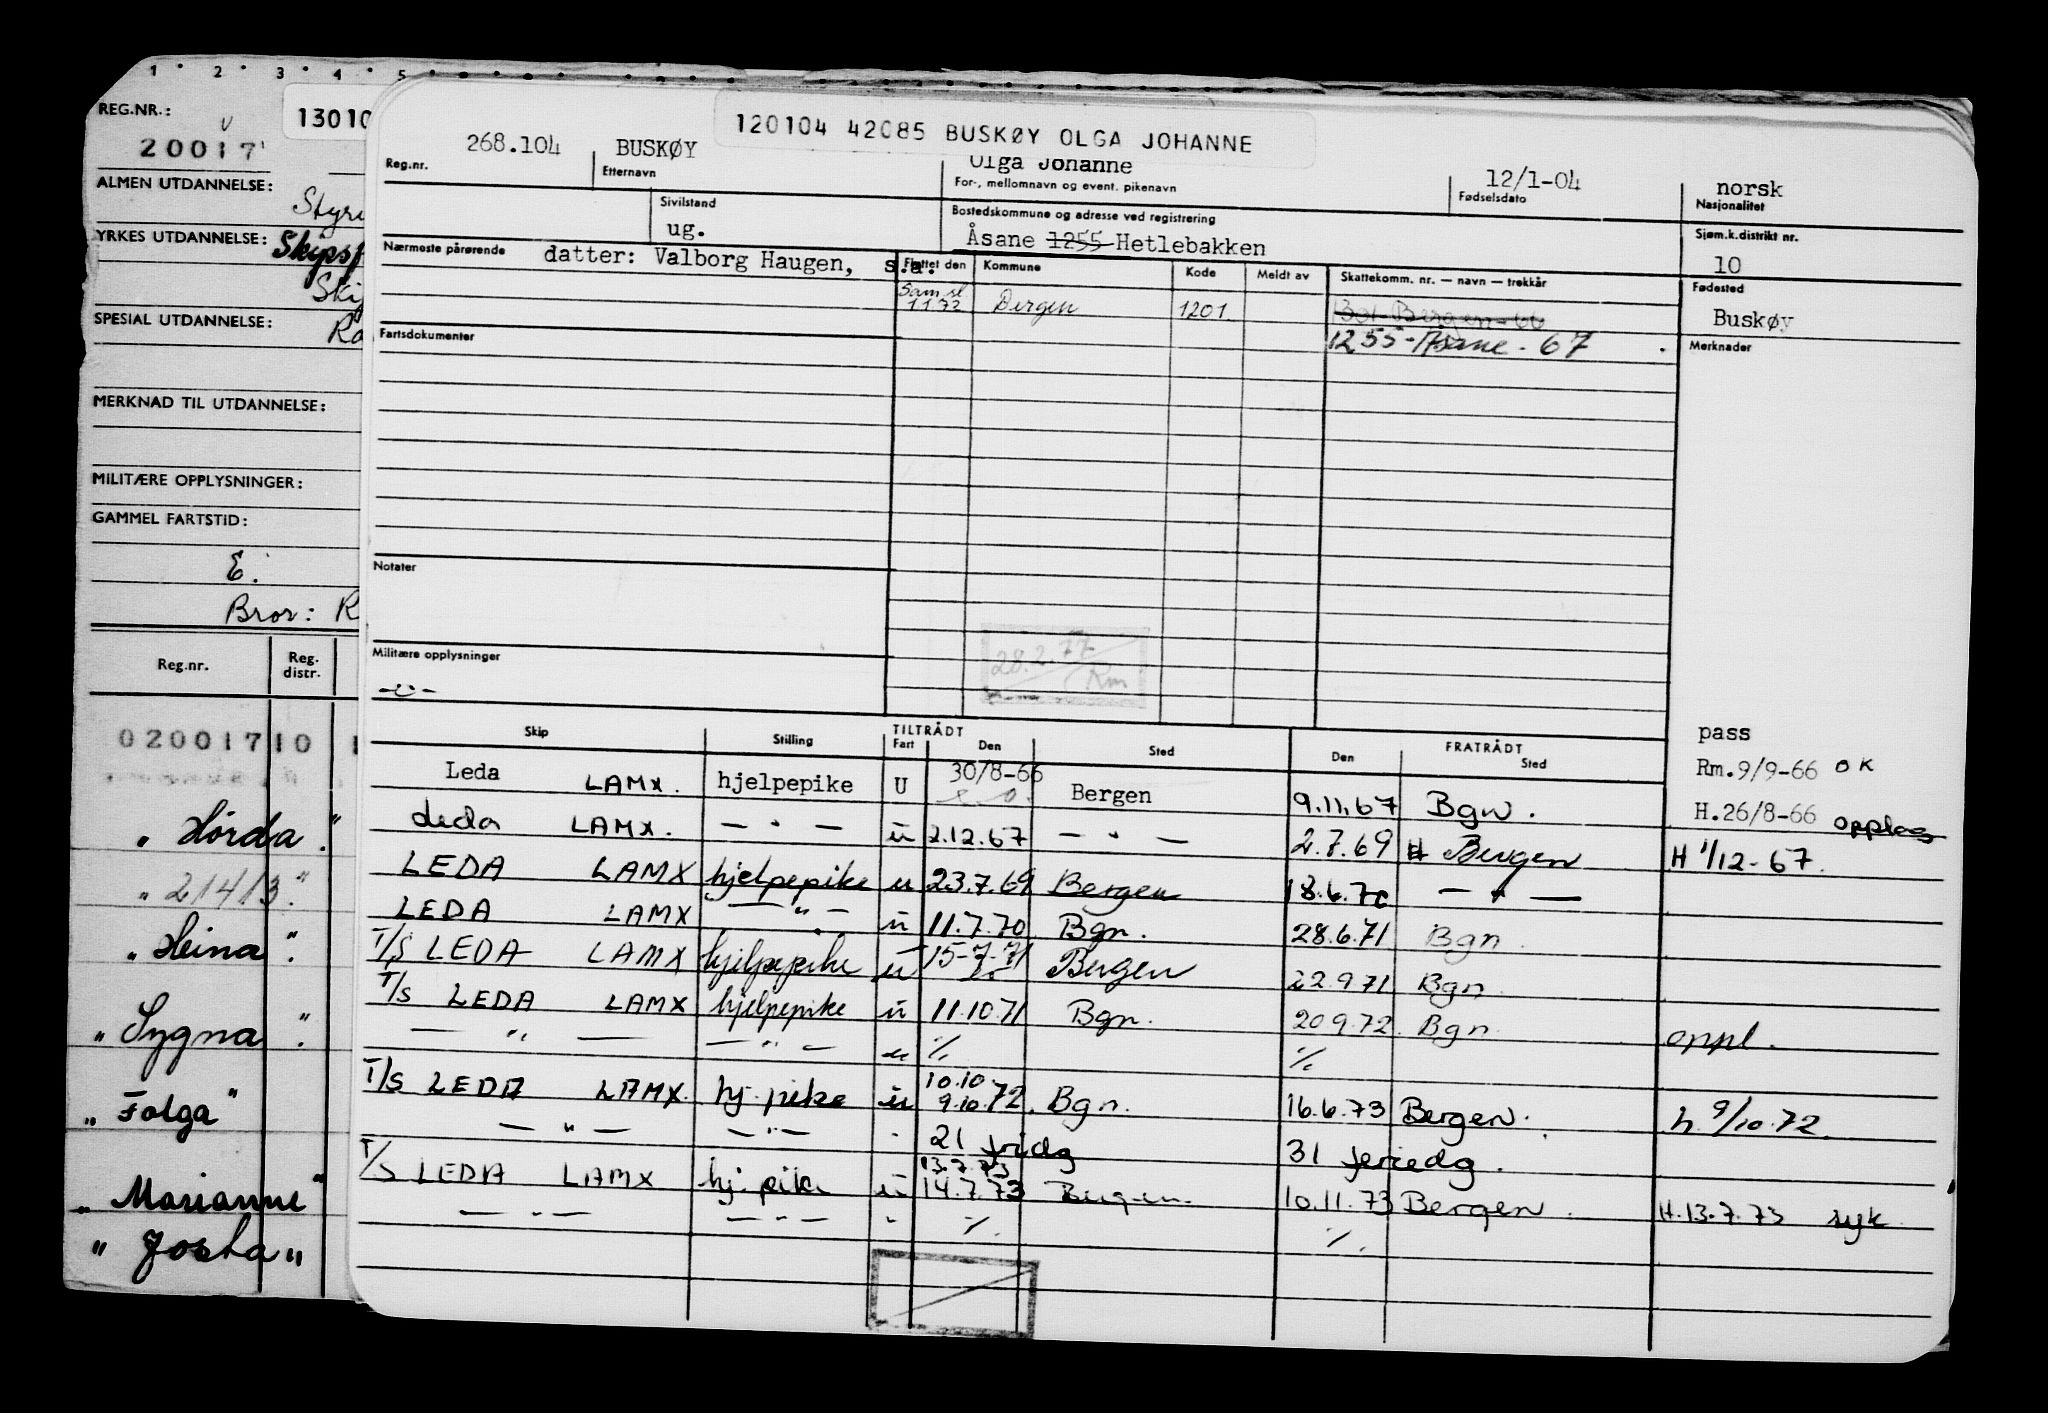 1 2 3 4 5
REG.NR.:
13010
20017
ALMEN UTDANNELSE:
YRKES UTDANNELSE:
SPESIAL UTDANNELSE:
MERKNAD TIL UTDANNELSE:
MILITÆRE OPPLYSNINGER:
GAMMEL FARTSTID:
E.
Bror: R
Reg.nr. Reg. distr.
02001710
" Hørda "
" 21413 "
" Heina "
" Sygna "
" Folga "
" Marianne "
" Josta "
120104 42085 BUSKØY OLGA JOHANNE
268.104 BUSKØY Olga Johanne 12/1-04 norsk
Reg.nr. Etternavn For-, mellomnavn og event. pikenavn Fødselsdato Nasjonalitet
Sivilstand Bostedskommune og adresse ved registrering Sjøm.k.distrikt nr.
ug. Åsane 1255 Hetlebakken 10
Nærmeste pårørende datter: Valborg Haugen, s.a. Flyttet den Kommune Kode Meldt av Skattekomm. nr. — navn — trekkår Fødested
Sam.sl 1.1.72 Bergen 1201 1301-Bergen-66 Buskøy
Fartsdokumenter 1255-Åsane-67 Merknader
Notater
28.2.77
Rm
Militære opplysninger
Skip Stilling TILTRÅDT Fart Den Sted FRATRÅDT Den Sted pass
Leda LAMX. hjelpepike U 30/8-66 Bergen 9.11.67 Bgn. Rm.9/9-66 OK
Leda LAMX. — " — u 2.12.67 — " — 2.7.69 Bergen H.26/8-66 opplag
LEDA LAMX hjelpepike u 23.7.69 Bergen 18.6.70 — " — H 1/12-67.
LEDA LAMX — " — u 11.7.70 Bgn. 28.6.71 Bgn.
T/S LEDA LAMX hjelpepike u 15-7-71 Bergen 22.9.71 Bgn.
T/S LEDA LAMX hjelpepike u 11.10.71 Bgn. 20.9.72. Bgn. oppl.
— " — — " — u %. %.
T/S LEDA LAMX. hj. pike u 10.10 9.10.72. Bgn. 16.6.73 Bergen. h. 9/10.72.
— " — — " — " 21 fridg 31 feriedg.
T/S LEDA LAMX hj. pike u 13.7.73 14.7.73 Bergen. 10.11.73 Bergen. H.13.7.73 syk
— " — — " — " %. %.